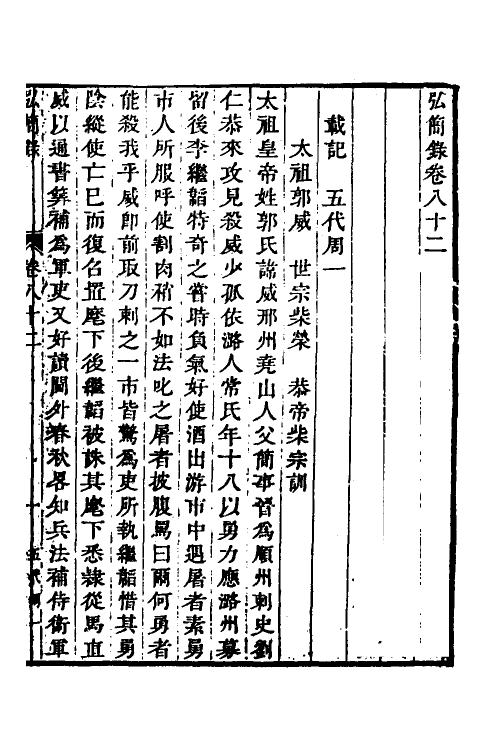 弘簡錄卷八十二
載記　五代周一
太祖郭威　世宗柴榮　恭帝柴宗訓
太祖皇帝姓郭氏諱威邢州堯山人父簡事晉為順州刺史劉
仁恭來攻見殺威少孤依潞人常氏年十八以勇力應潞州募
留後李繼韜特奇之嘗時負氣好使酒出游市中遇屠者素勇
市人所服呼使割肉稍不如法叱之屠者披腹罵曰爾何勇者
能殺我乎威即前取刀刺之一市皆驚為吏所執繼韜惜其勇
陰縱使亡已而復召置麾下後繼韜被誅其麾下悉隸從馬直
威以通書算補為軍吏又好讀閫外春秋畧知兵法補侍衛軍
弘簡錄　卷八十二　五代周一